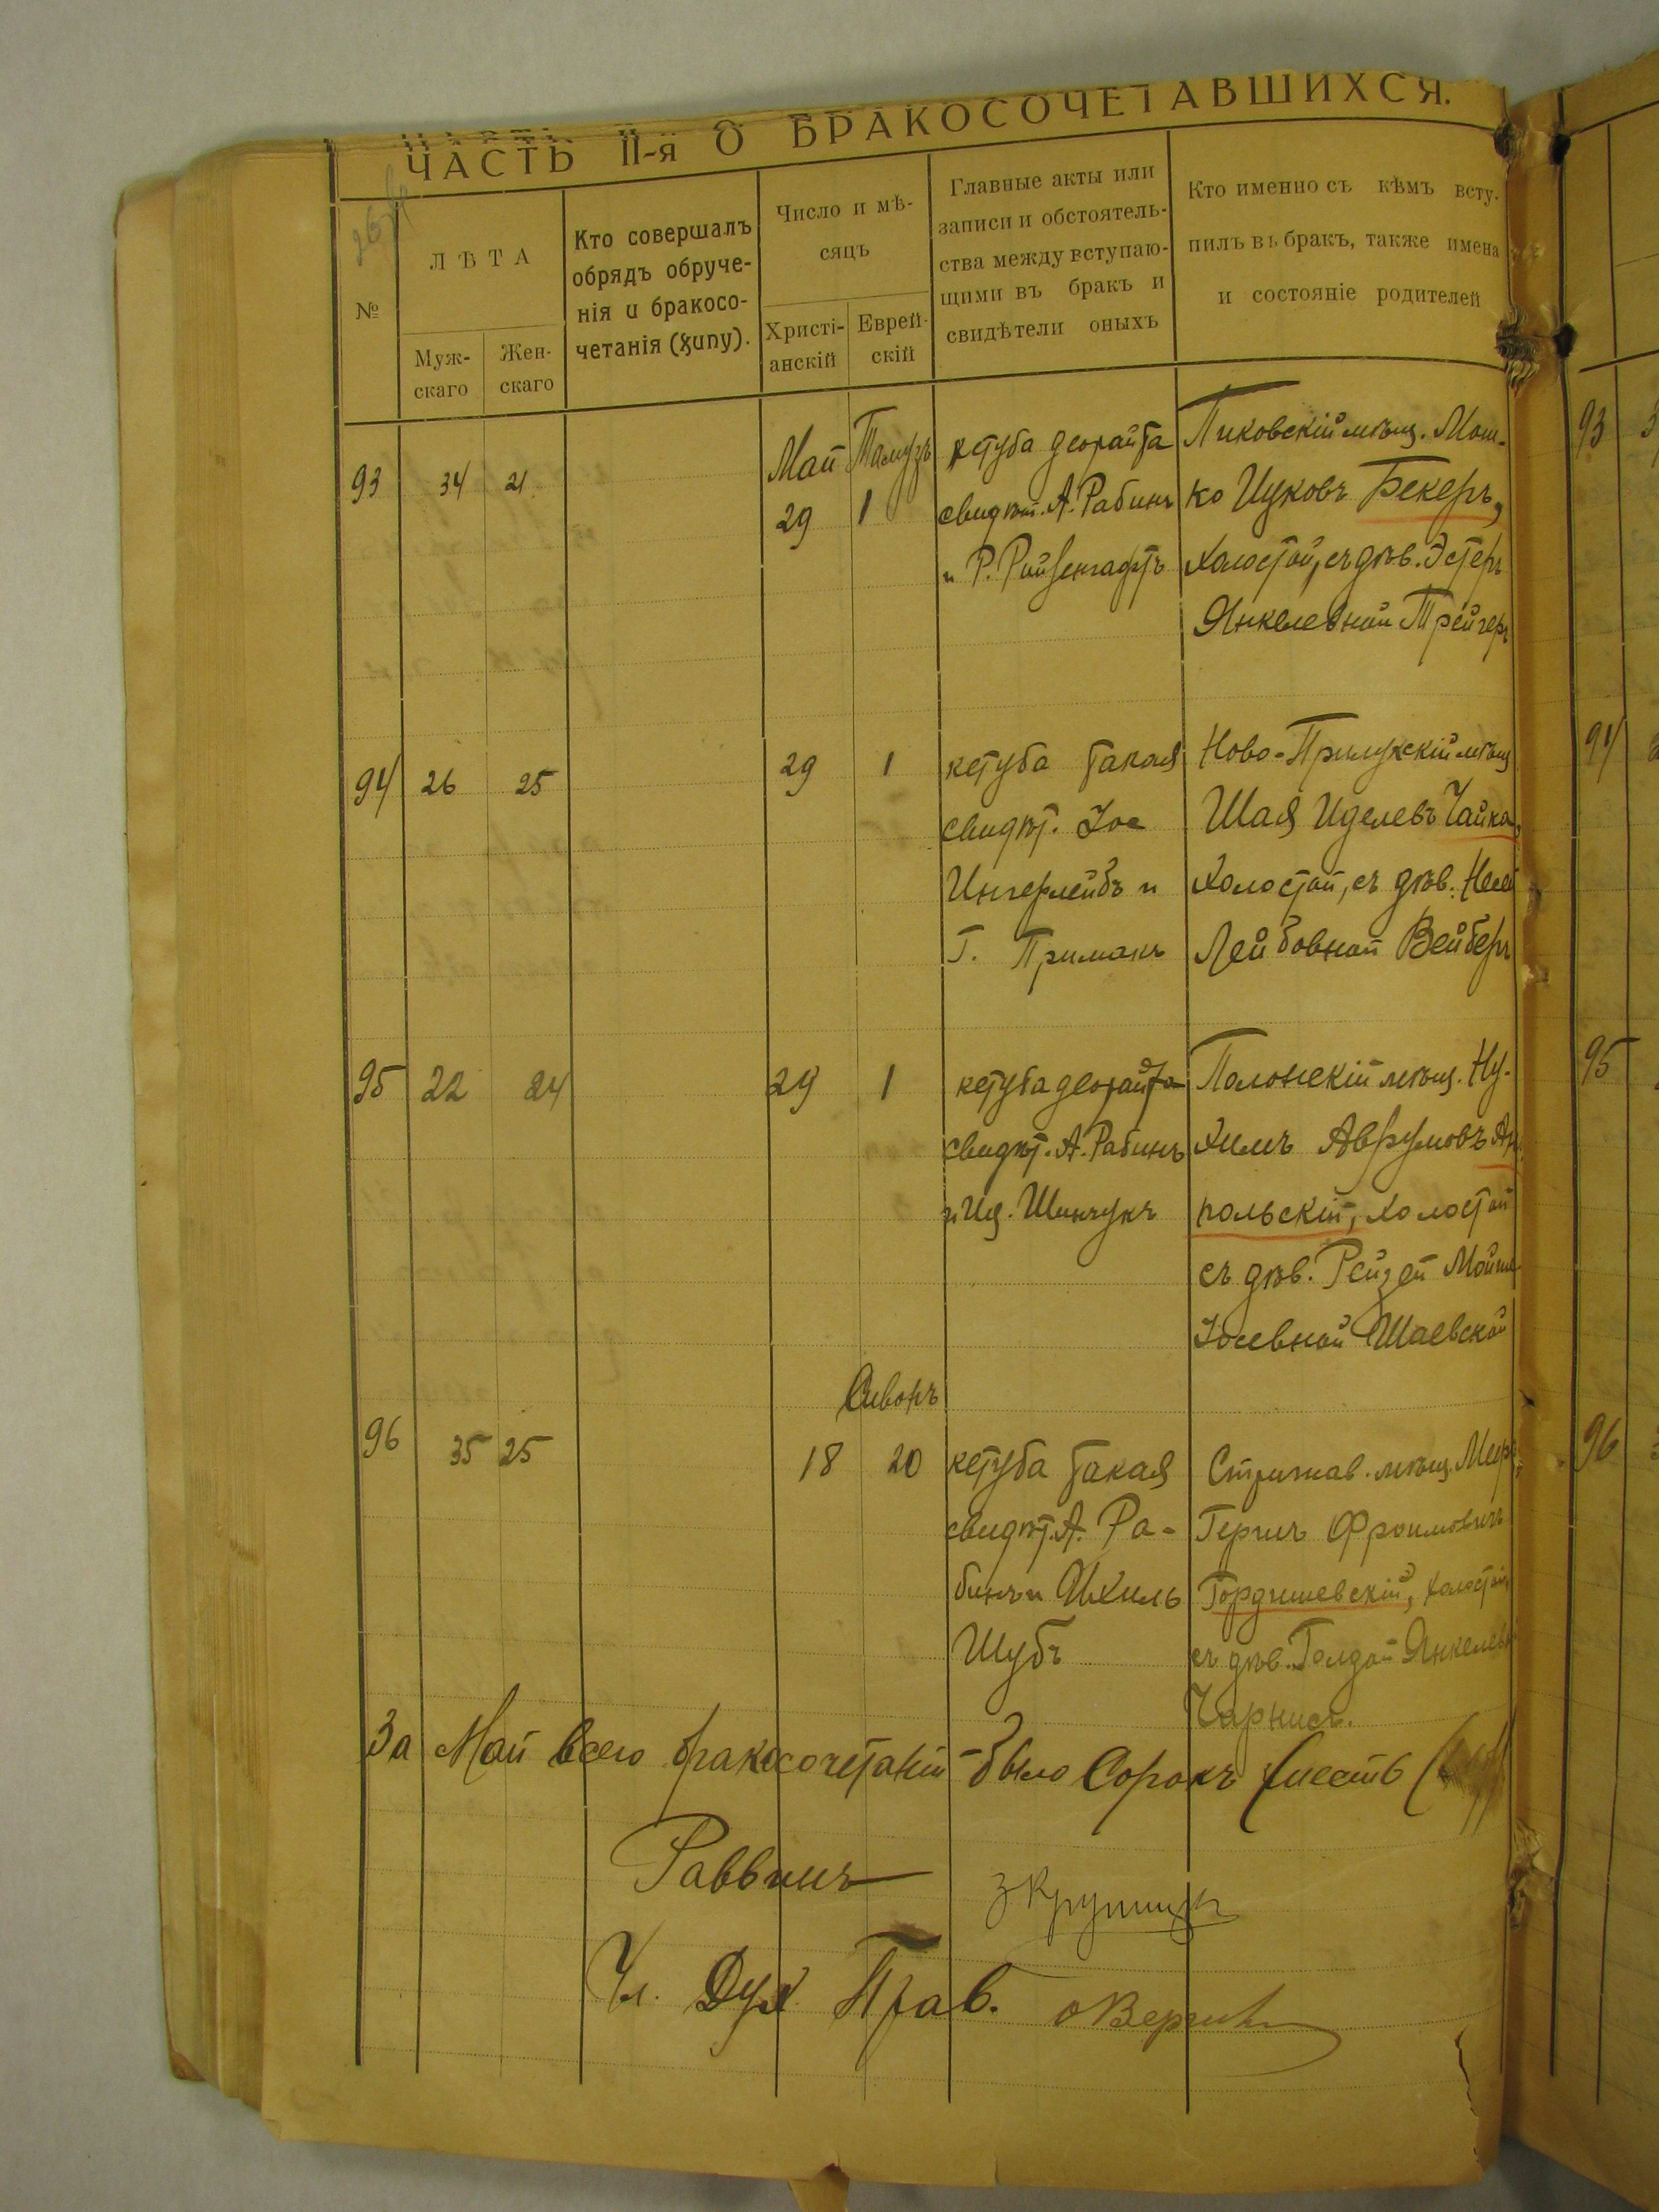 ЧАСТЬ II-я О БРАКОСОЧЕТАВШИХСЯ.
№
ЛѢТА
Муж-
скаго
Жен-
скаго
Кто совершалъ
обрядъ обруче-
нія и бракосо-
четанія (хупу).
Число и мѣ-
сяцъ
Христі-
анскій
Еврей-
скій
Главные акты или
записи и обстоятель-
ства между вступаю-
щими въ бракъ и
свидѣтели оныхъ
Кто именно съ кѣмъ всту-
пилъ въ бракъ, также имена
и состояніе родителей
93
34
21
Май
29
Тамузъ
1
кетуба деорайта
свидѣт. А. Рабинъ
и Р. Ройзенгафтъ
Пиковскій мѣщ. Мош-
ко Ицковъ Бекеръ,
холостой, съ дѣв. Эстеръ
Янкелевной Трейгеръ
94
26
25
29
1
кетуба такая
свидѣт. Іос
Ингерлейбъ и
Г. Примакъ
Ново-Прилукскій мѣщ
Шая Иделевъ Чайка,
холостой, съ дѣв.
Лейбовной Вейберъ
95
22
24
29
1
кетуба деорайта
свидѣт. А. Рабинъ
и Иц. Шинчукъ
Полонскій мѣщ. Ну-
химъ Аврумовъ Ан-
польскій, холостой
съ дѣв. Рейзей Мойше
Іосевной Шаевской
96
35
25
18
Сивонъ
20
кетуба такая
свидѣт. А. Ра-
бинъ и Ихиль
Шубъ
Стрижав. мѣщ. Меер
Гершъ Фроимовичъ
Гордишевскій, холостой,
съ дѣв. Голдой Янкелевн
Чарнисъ.
За Май всего бракосочетаній было Сорокъ шесть
Раввинъ
Чл. Дух Прав.
93
94
95
96